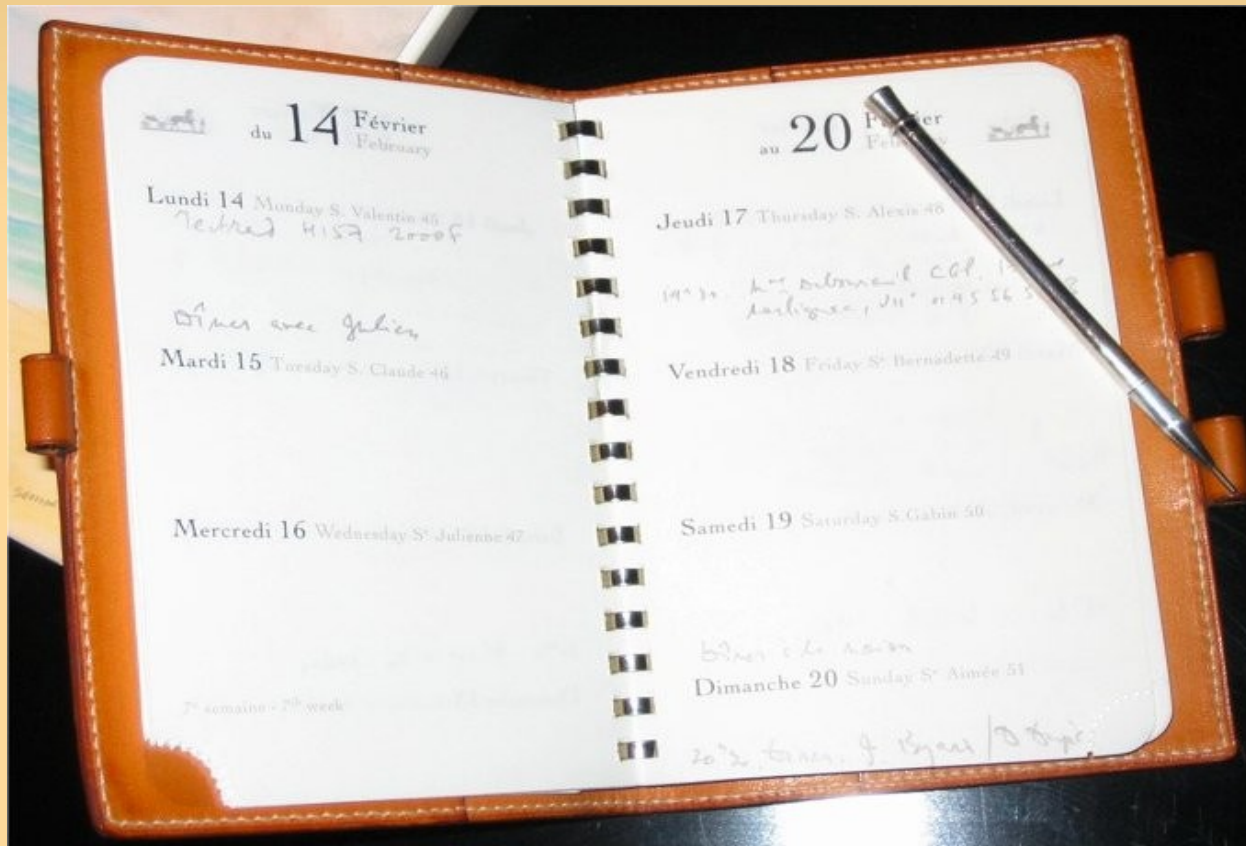 du 14 Février
February
Lundi 14 Monday S. Valentin 45
2000F
Dîner avec Julien
Mardi 15 Tuesday S. Claude 46
Mercredi 16 Wednesday Sᵉ Julienne 47
7ᵉ semaine - 7ᵗʰ week
au 20 Février
February
Jeudi 17 Thursday S. Alexis 48
Vendredi 18 Friday Sᵉ Bernadette 49
Samedi 19 Saturday S. Gabin 50
Dîner à la maison
Dimanche 20 Sunday Sᵉ Aimée 51
20ʰ30 Dîner J.